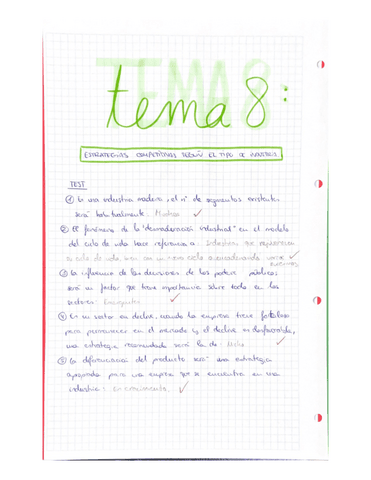 TEMA 8
tema 8:
ESTRATEGIAS COMPETITIVAS SEGÚN EL TIPO DE INDUSTRIA.
TEST
1 En una industria madura, el nº de segmentos existentes
será habitualmente: Muchos
2 El fenómeno de la "desmaduración industrial" en el modelo
del ciclo de vida hace referencia a: Industrias que
su ciclo de vida, con un nuevo ciclo
3 La influencia de las decisiones de los poderes públicos
será un factor que tiene importancia sobre todo en los
sectores: Emergentes
4 En un sector en declive, cuando la empresa tiene fortalezas
para permanecer en el mercado y el declive es desfavorable,
una estrategia recomendada será la de: Nicho
5 La diferenciación del producto será una estrategia
apropiada para una empresa que se encuentra en una
industria: En crecimiento.